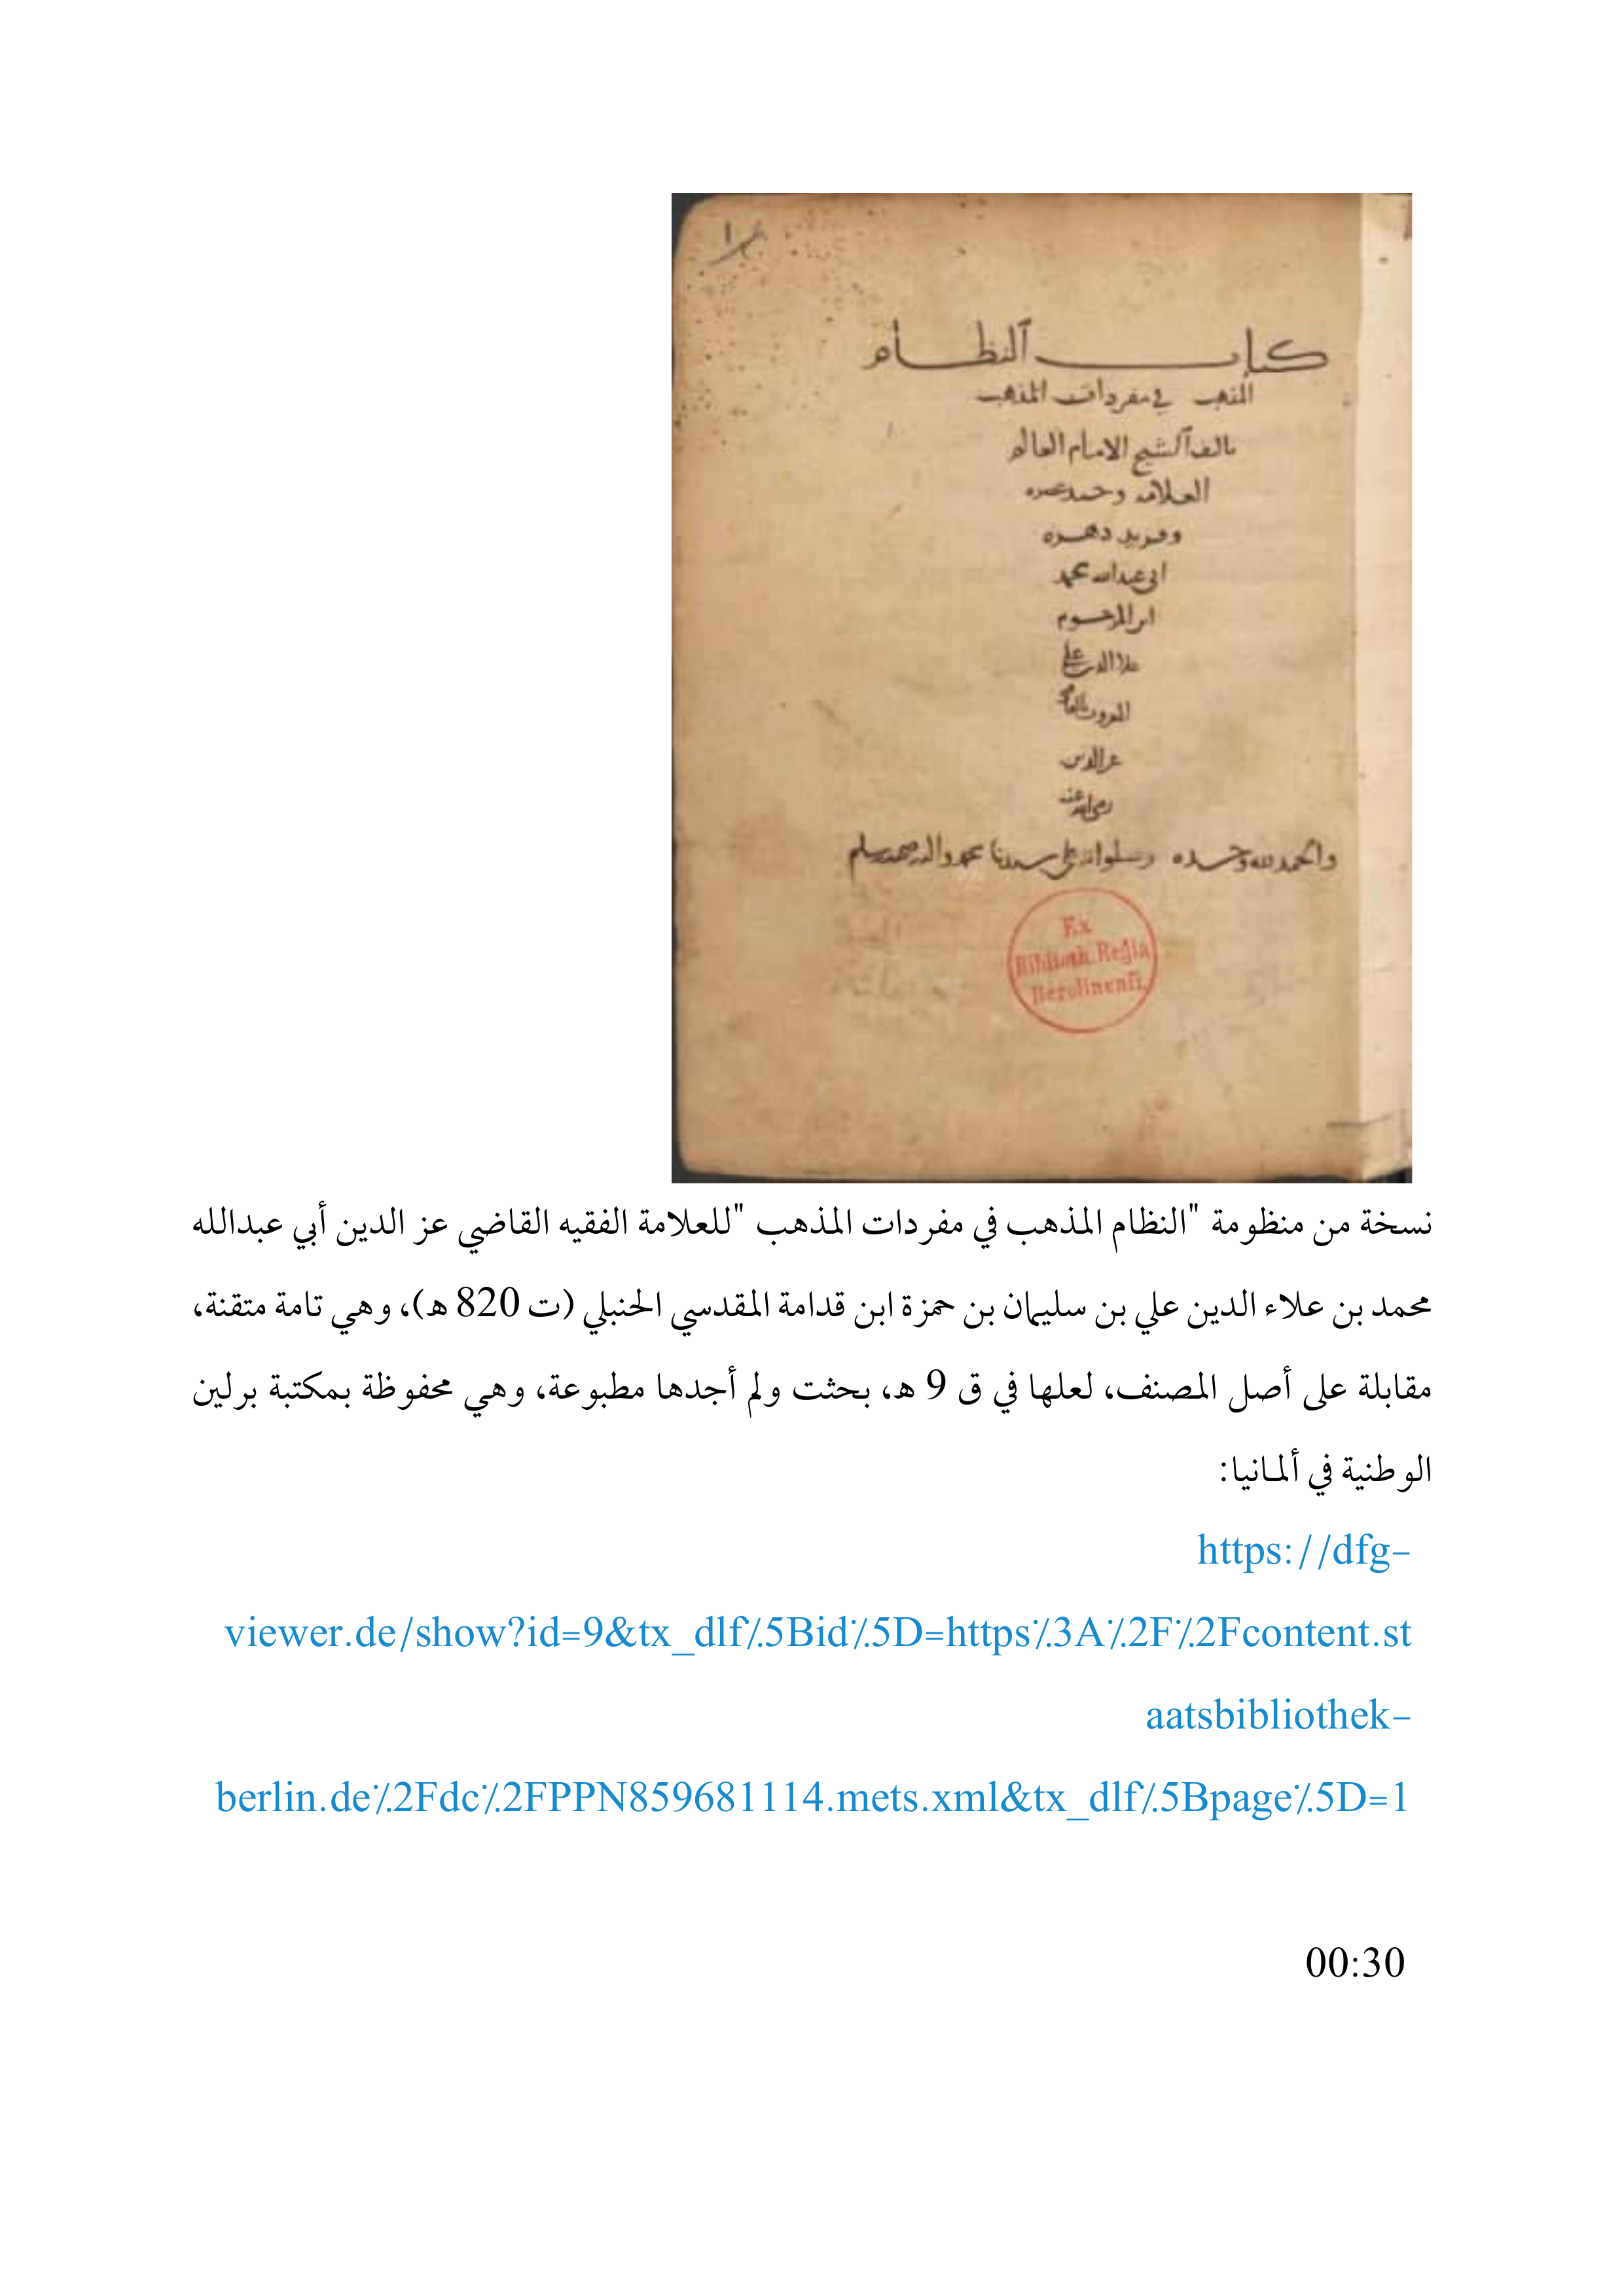 ١
كتاب النظام
المذهب في مفردات المذهب
تالىف الشيخ الامام العالم
العلامه وحىد عصره
وفريد دهره
ابي عبدالله محمد
ابن المرحوم
علاا الدين علي
المعروف
عز الدين
رضي الله عنه
والحمد لله وحده وصلواته على سيدنا محمد واله وصحبه وسلم
Ex
Biblioth. Regia
Berolinenſi.
نسخة من منظومة "النظام المذهب في مفردات المذهب "للعلامة الفقيه القاضي عز الدين أبي عبدالله
محمد بن علاء الدين علي بن سليمان بن حمزة ابن قدامة المقدسي الحنبلي (ت 820 هـ)، وهي تامة متقنة،
مقابلة على أصل المصنف، لعلها في ق 9 هـ، بحثت ولم أجدها مطبوعة، وهي محفوظة بمكتبة برلين
الوطنية في ألمانيا:
https://dfg-
viewer.de/show?id=9&tx_dlf%5Bid%5D=https%3A%2F%2Fcontent.st
aatsbibliothek-
berlin.de%2Fdc%2FPPN859681114.mets.xml&tx_dlf%5Bpage%5D=1
00:30